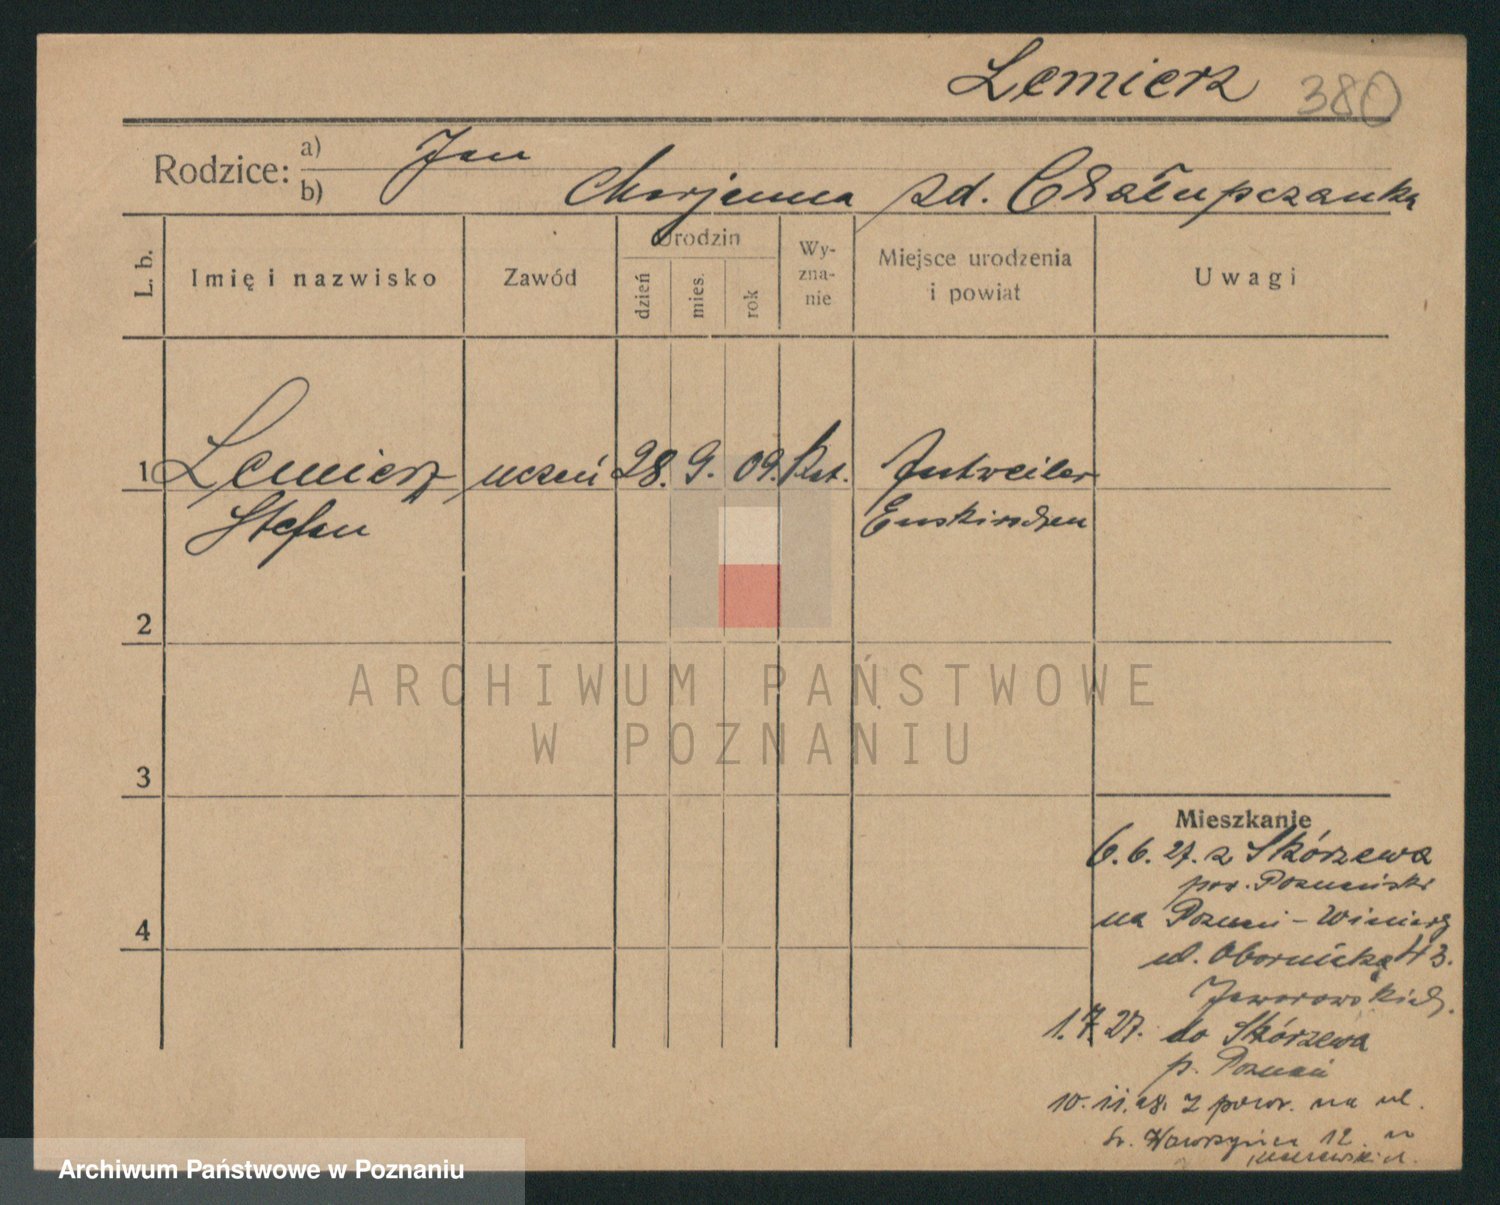 Lemierz 380
Rodzice:
a) Jan
b) Marjanna zd. Chałupczanka
L. b.
Imię i nazwisko
Zawód
Urodzin
dzień
mies.
rok
Wy-
zna-
nie
Miejsce urodzenia
i powiat
Uwagi
1 Lemierz uczeń 28. 9. 09. Kat. Antweiler
Stefan Euskirchen
2
3
4
Mieszkanie
6.6.27. z Skórzewa
pow. Poznański
na Poznań-Winiary
ul. Obornicka 43.
Jaworowskich.
1.7.27. do Skórzewa
p. Poznań
10.11.28. z powr. na ul.
św. Wawrzyńca 12. u
ARCHIWUM PAŃSTWOWE
W POZNANIU
Archiwum Państwowe w Poznaniu